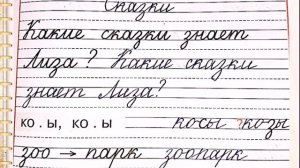 Сказки
Какие сказки знает
Лиза? Какие сказки
знает Лиза?
ко . ы, ко . ы косы козы
зоо → парк зоопарк